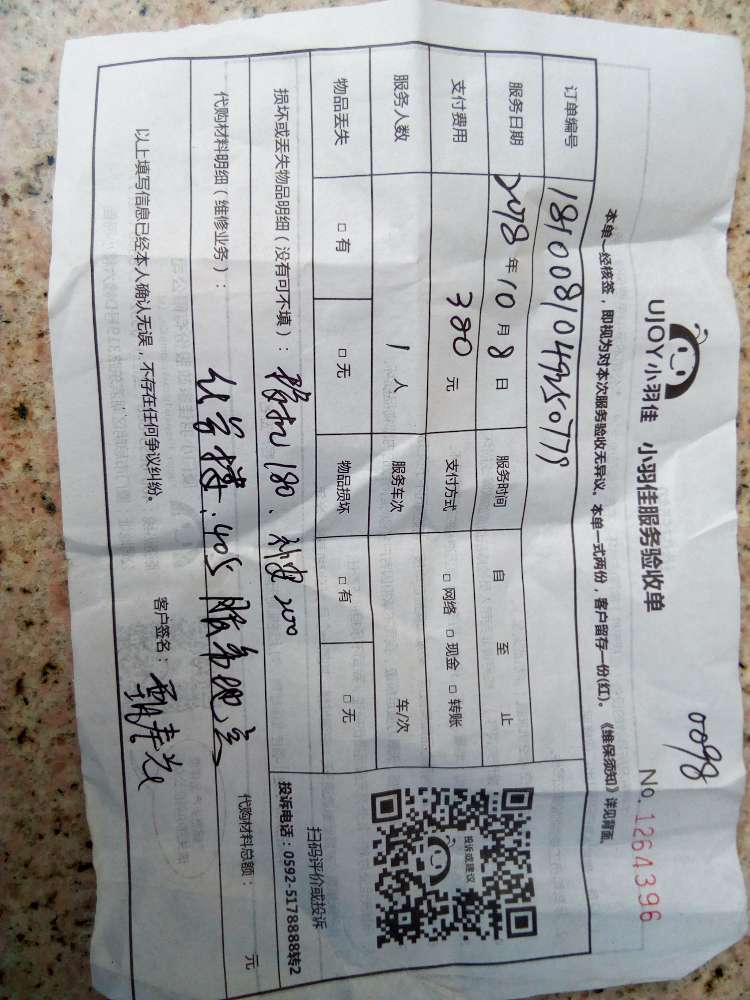 0098
UJOY小羽佳 小羽佳服务验收单 No. 1264396
本单一经核签，即视为对本次服务验收无异议。本单一式两份，客户留存一份(红)。《维保须知》详见背面。
订单编号
服务日期 2018 年 10 月 8 日 服务时间 自 至 止
支付费用 380 元 支付方式 □ 网络 □ 现金 □ 转账
服务人数 1 人 服务车次 车/次
物品丢失 □ 有 □ 无 物品损坏 □ 有 □ 无
损坏或丢失物品明细（没有可不填）： 180、 200
代购材料明细（维修业务）： 405 服务地点 代购材料总额： 元
以上填写信息已经本人确认无误，不存在任何争议纠纷。 客户签名：
投诉或建议
扫码评价或投诉
投诉电话：0592-5178888转2